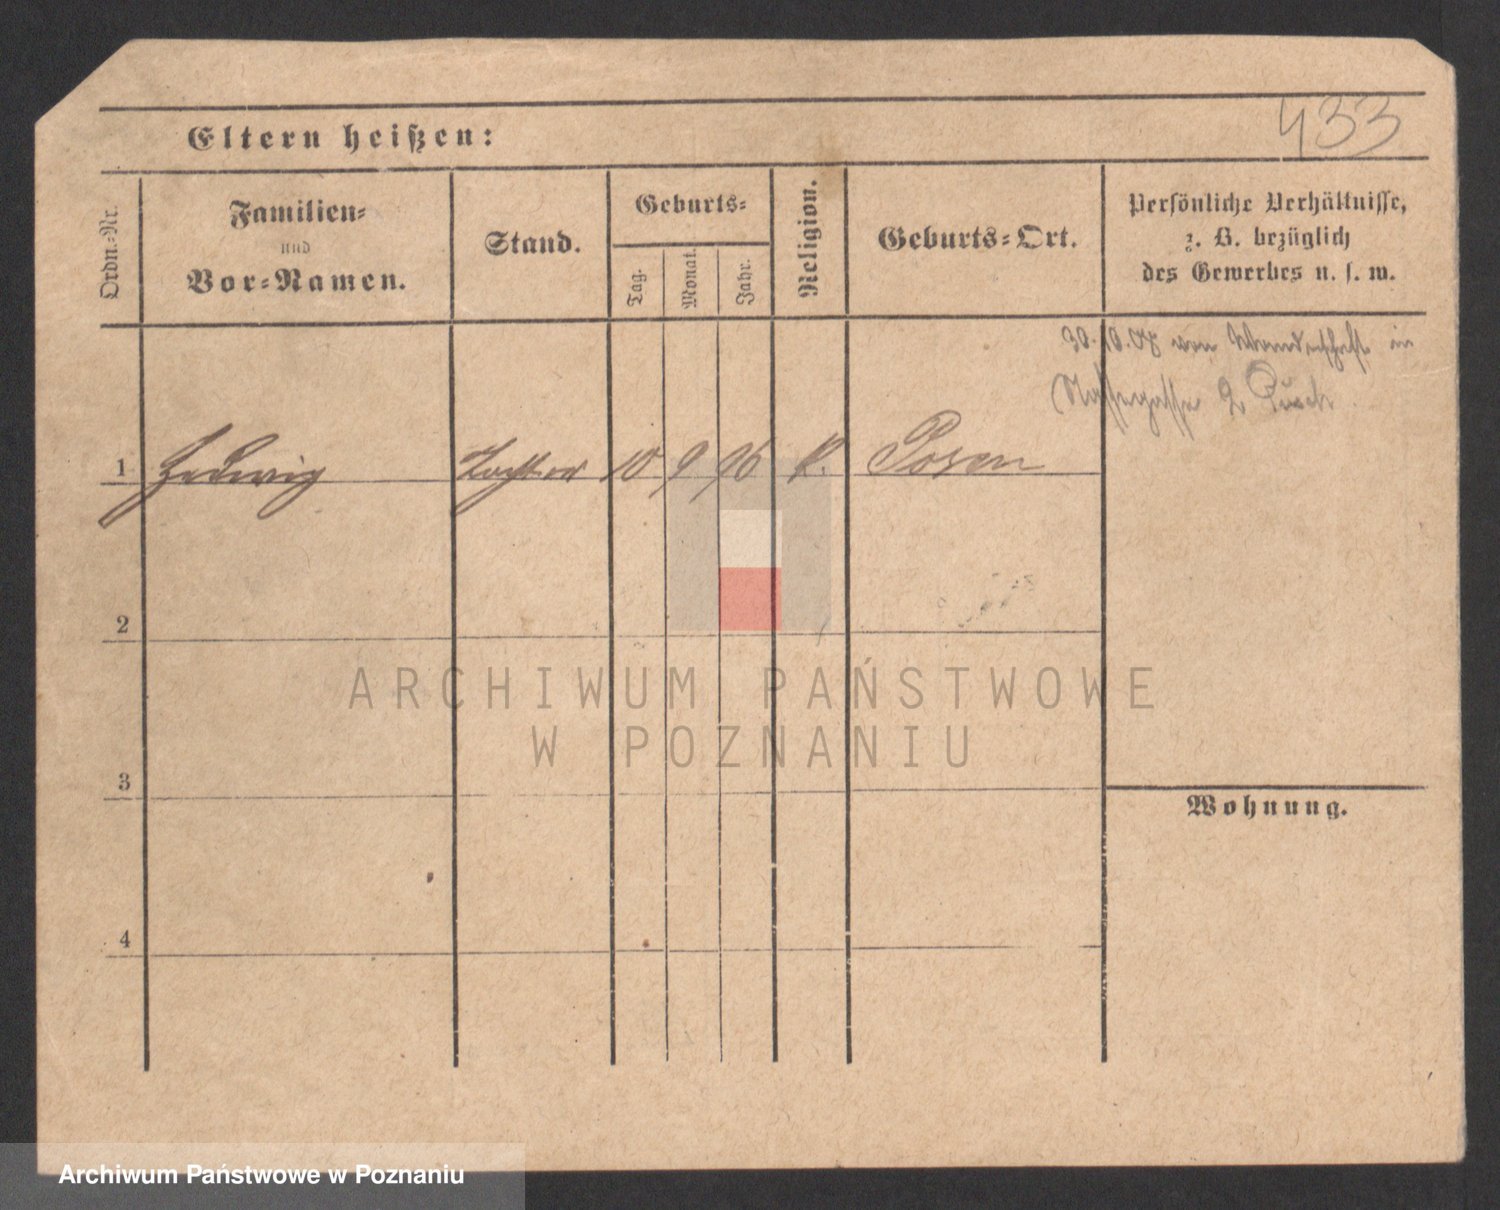 433
Eltern heißen:
Ordn.-Nr.
Familien-
und
Vor-Namen.
Stand.
Geburts-
Tag.
Monat.
Jahr.
Religion.
Geburts-Ort.
Persönliche Verhältnisse,
z. B. bezüglich
des Gewerbes u. s. w.
30.10.07 von in
2
1 Hedwig Tochter 10 9 96 k. Posen
2
3
4
Wohnung.
ARCHIWUM PAŃSTWOWE
W POZNANIU
Archiwum Państwowe w Poznaniu